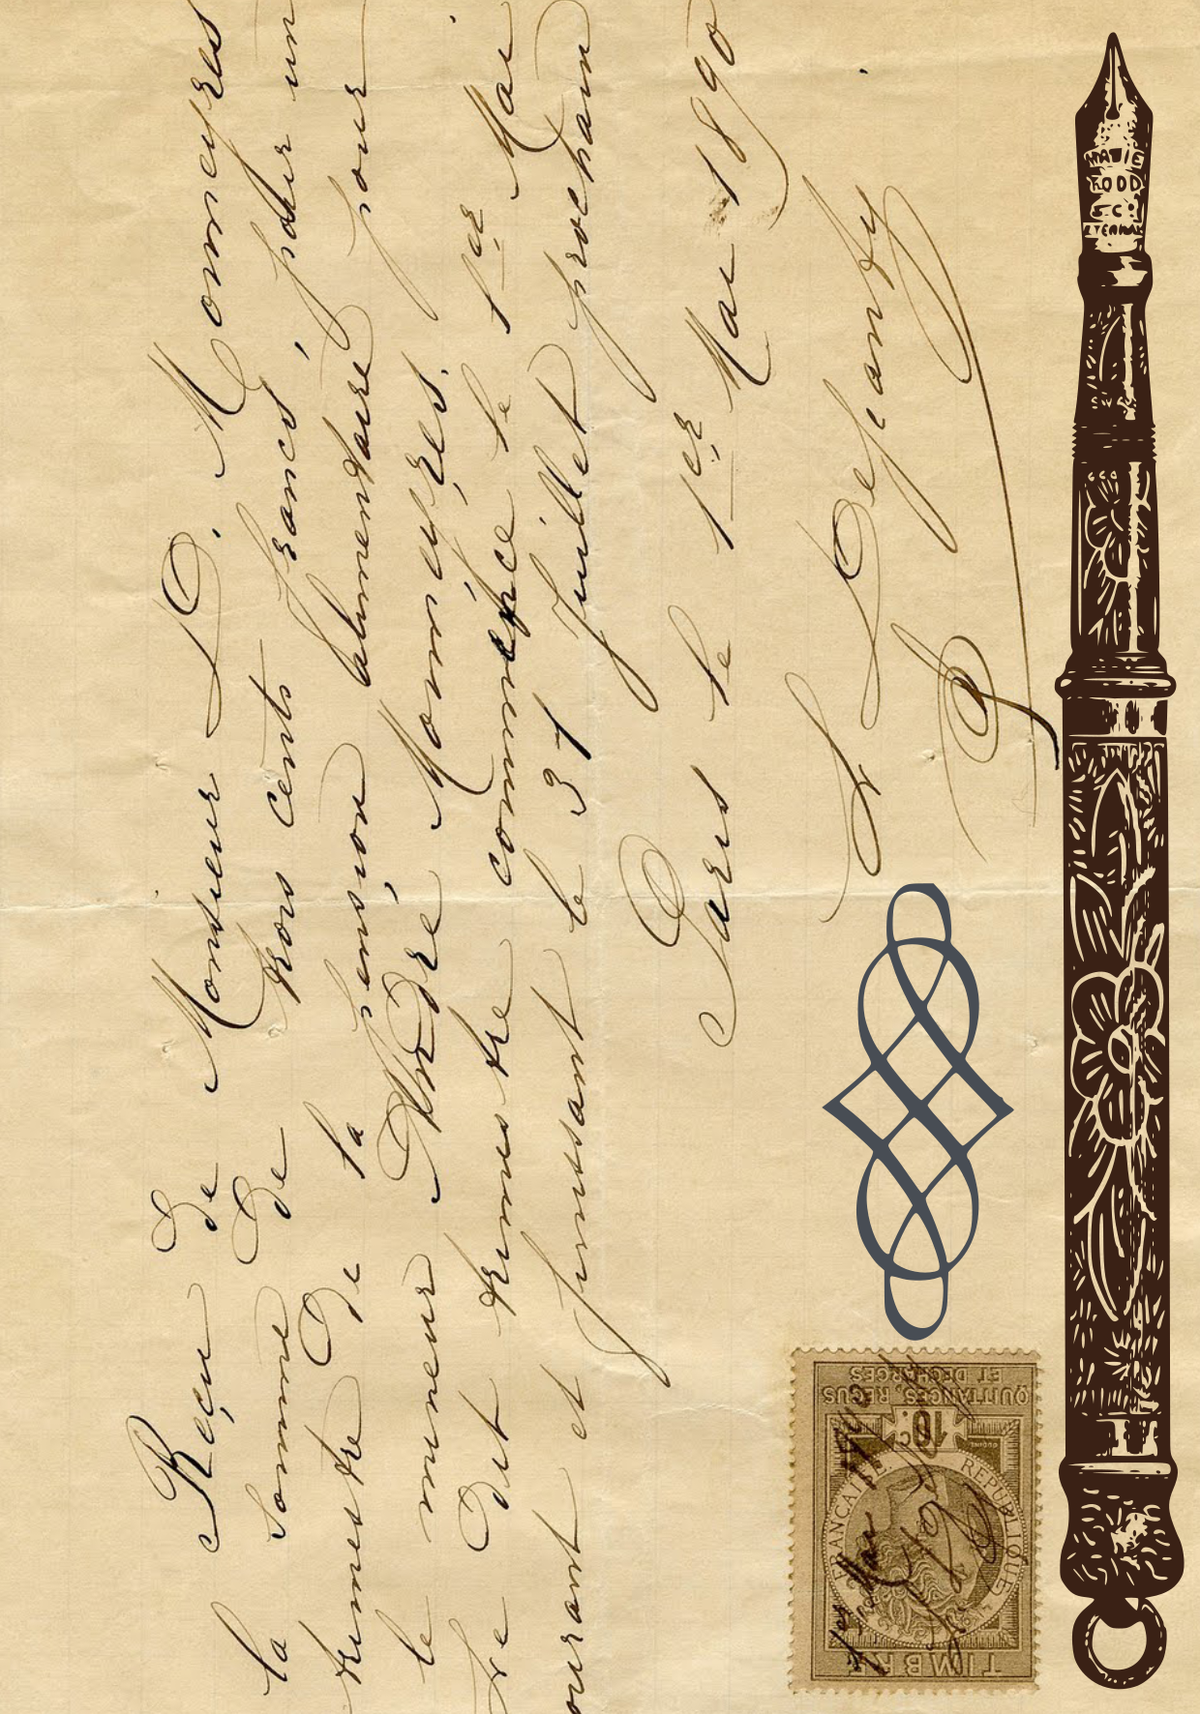 Reçu de Monsieur D. Momeyres
la somme de trois cents francs, pour un
trimestre de la pension alimentaire pour
le mineur André Momeyres.
Le dit trimestre commence le 1er Mai
courant et finissant le 31 Juillet prochain
Paris le 1er Mai 1890
L Dejeanty
QUITTANCES, REÇUS
ET DECHARGES
10 c.
REPUBLIQUE FRANCAISE
TIMBRE
1er Mai